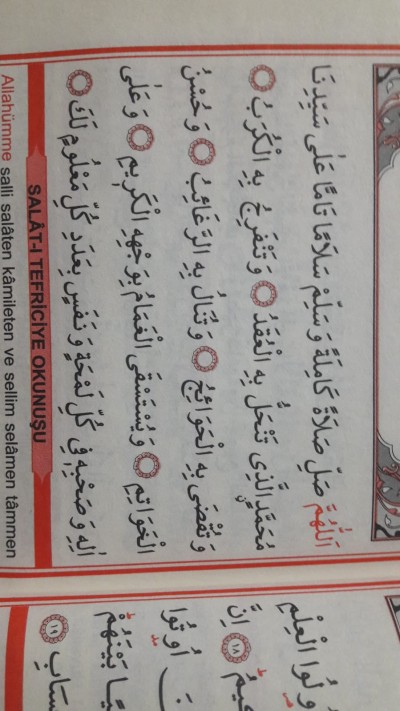 اَللّٰهُمَّ صَلِّ صَلَاةً كَامِلَةً وَسَلِّمْ سَلَامًا تَامًّا عَلٰى سَيِّدِنَا
مُحَمَّدٍ الَّذِي تَنْحَلُّ بِهِ الْعُقَدُ وَتَنْفَرِجُ بِهِ الْكُرَبُ
وَتُقْضَى بِهِ الْحَوَائِجُ وَتُنَالُ بِهِ الرَّغَائِبُ وَحُسْنُ
الْخَوَاتِيمِ وَيُسْتَسْقَى الْغَمَامُ بِوَجْهِهِ الْكَرِيمِ وَعَلٰى
اٰلِهِ وَصَحْبِهِ فِي كُلِّ لَمْحَةٍ وَنَفَسٍ بِعَدَدِ كُلِّ مَعْلُومٍ لَكَ
SALÂT-I TEFRİCİYE OKUNUŞU
Allahümme salli salâten kâmileten ve sellim selâmen tâmmen
الْعِلْمِ
١٨ اِنَّ
اُوتُوا
بَيْنَهُمْ
١٩